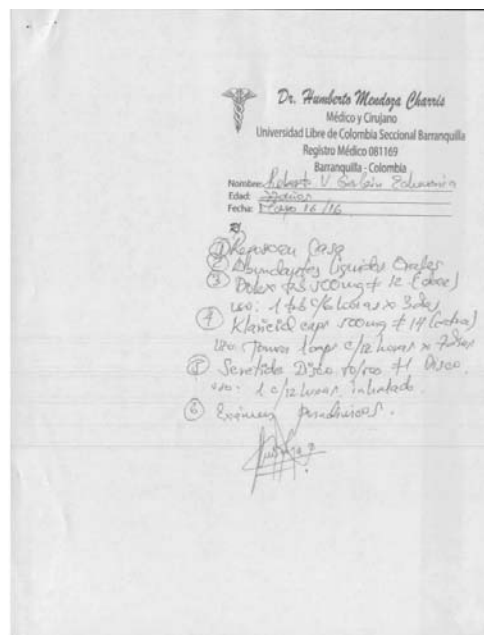 Dr. Humberto Mendoza Charris
Médico y Cirujano
Universidad Libre de Colombia Seccional Barranquilla
Registro Médico 081169
Barranquilla - Colombia
Nombre: Roberto V
Edad:
Fecha: Mayo 16/16
R/
① Reposo en Casa
② Abundantes liquidos Orales
③ Dolex tab 500mg # 12 (doce)
uso: 1 tab c/6 horas x 3 dias
④ Klaricid caps 500mg # 14
uso: Tomar 1 caps c/12 horas x 7 dias
⑤ Seretide Disco # 1 Disco
uso: 1 c/12 horas inhalado.
⑥